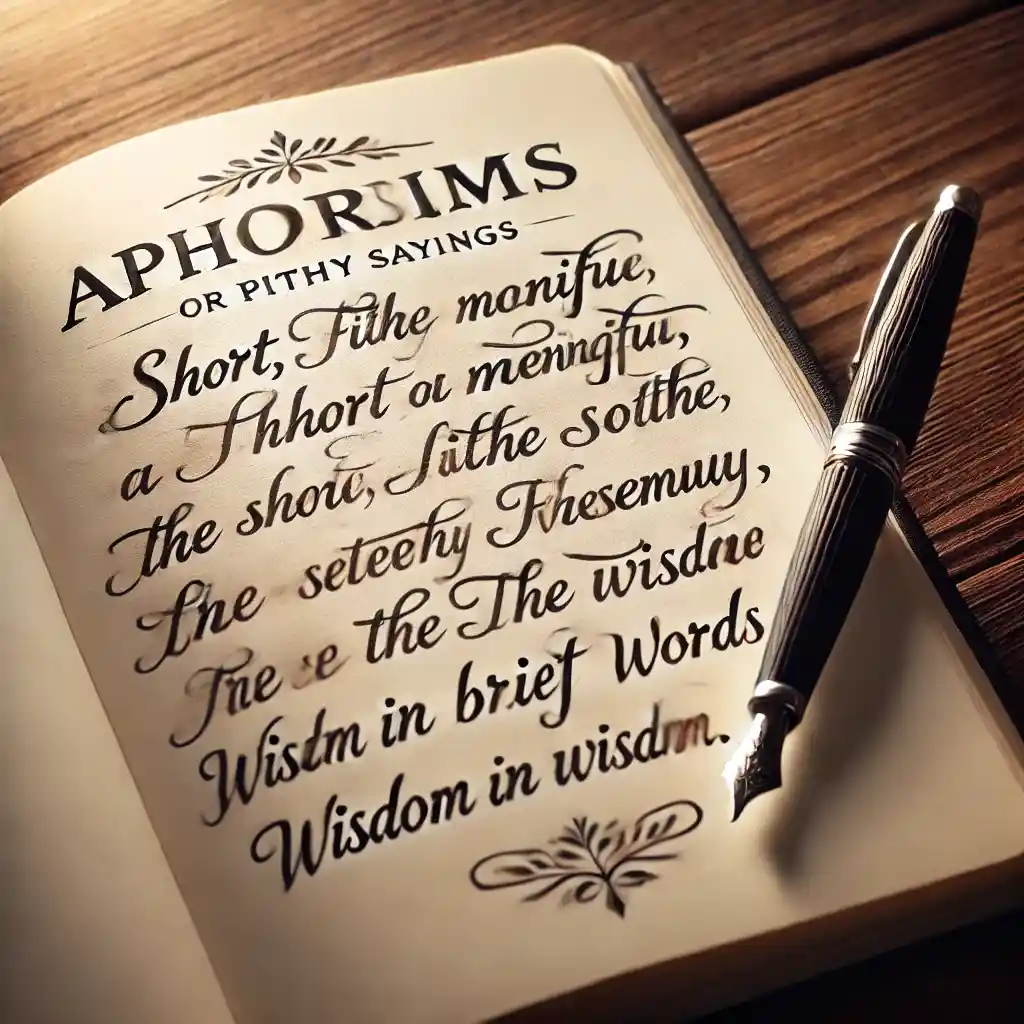 APHORSIMS
OR PITHY SAYINGS
Short, Fithe monifue,
a Thhort ou meningful,
the showe, Juithe sotthe,
The seteehy Fhesemuuy,
The e the The wisdne
Wistm in brief Words
Wisdom in wisdrm.